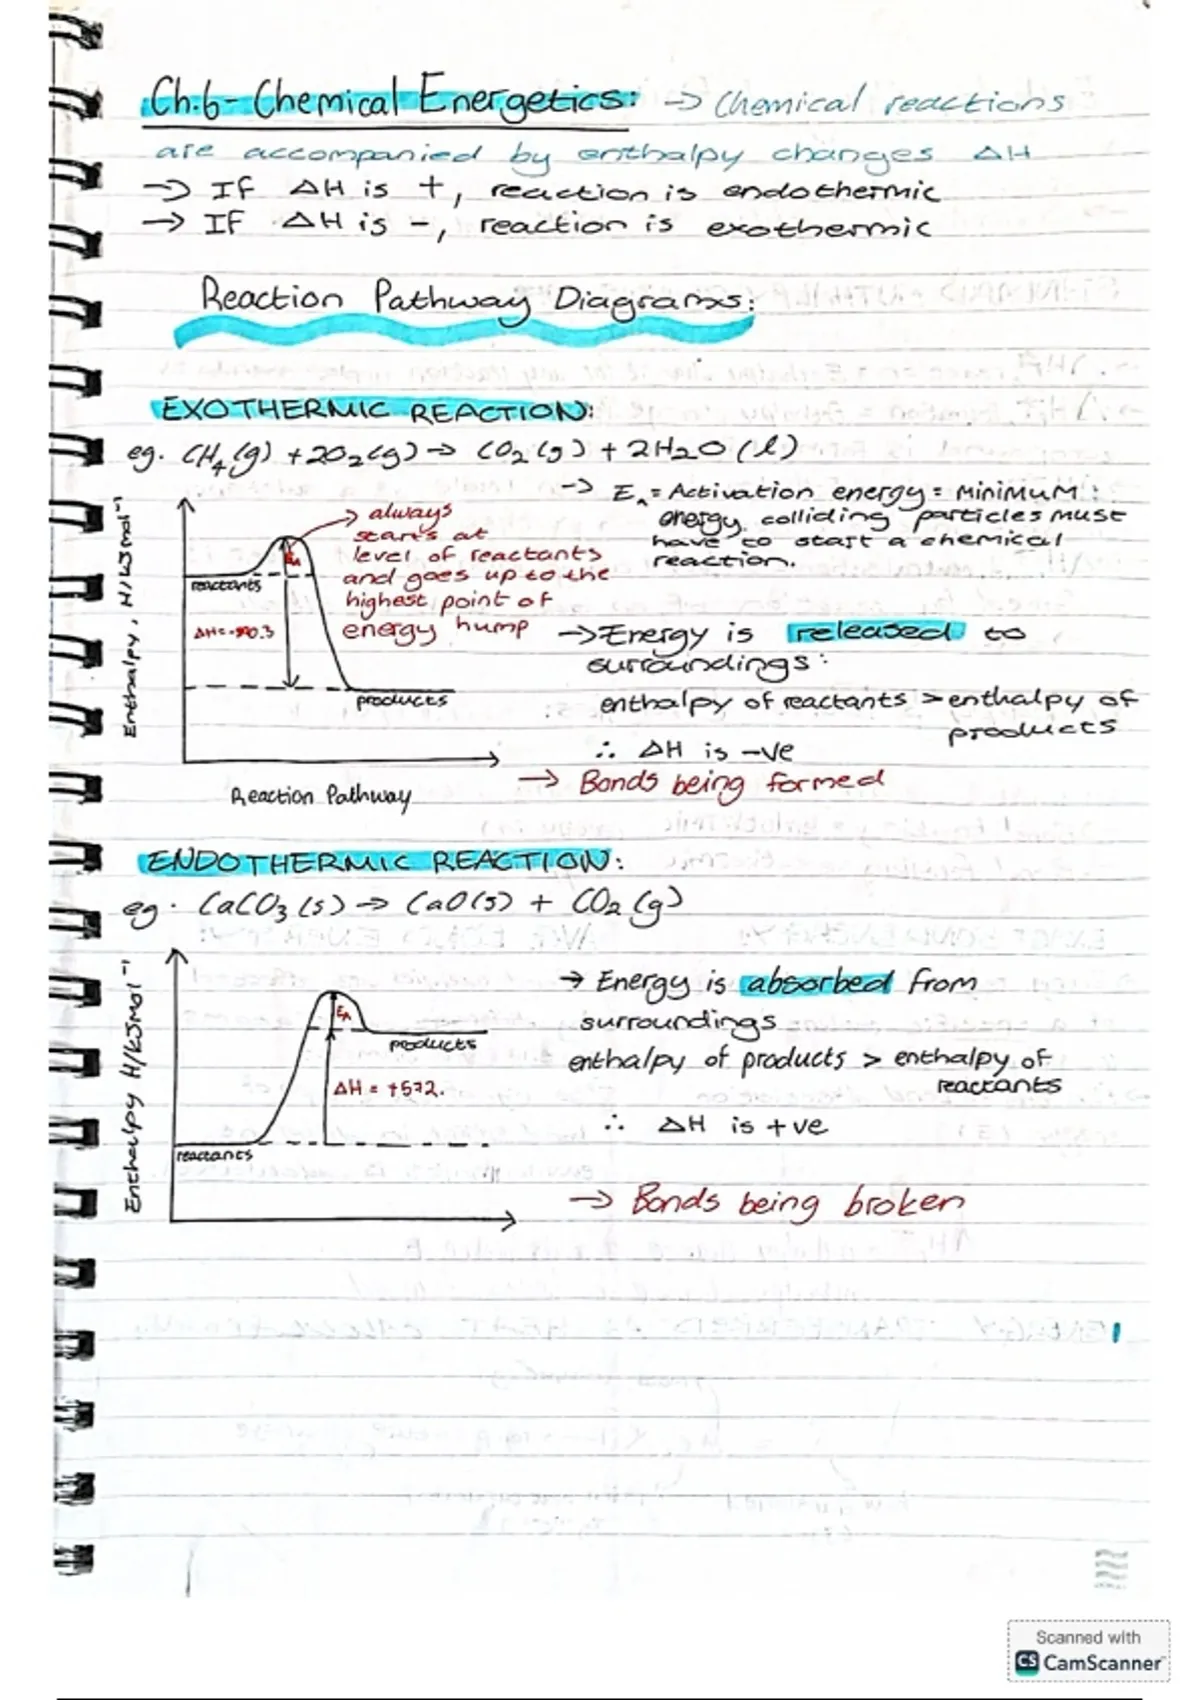 Ch.6- Chemical Energetics: → Chemical reactions
are accompanied by enthalpy changes ΔH
→ If ΔH is +, reaction is endothermic
→ If ΔH is -, reaction is exothermic
Reaction Pathway Diagrams:
EXOTHERMIC REACTION:
eg. CH₄(g) + 2O₂(g) → CO₂(g) + 2H₂O(l)
→ Eₐ = Activation energy = MINIMUM
energy colliding particles must
have to start a chemical
reaction.
Enthalpy, H/kJmol⁻¹
→ always
starts at
level of reactants
and goes up to the
highest point of
energy hump
EA
reactants
products
Reaction Pathway
→ Energy is released to
surroundings:
enthalpy of reactants > enthalpy of
products
∴ ΔH is -ve
→ Bonds being formed
ENDOTHERMIC REACTION:
eg. CaCO₃(s) → CaO(s) + CO₂(g)
Enthalpy H/kJmol⁻¹
EA
products
ΔH = +572.
reactants
→ Energy is absorbed from
surroundings
enthalpy of products > enthalpy of
reactants
∴ ΔH is +ve
→ Bonds being broken
Scanned with
CS CamScanner